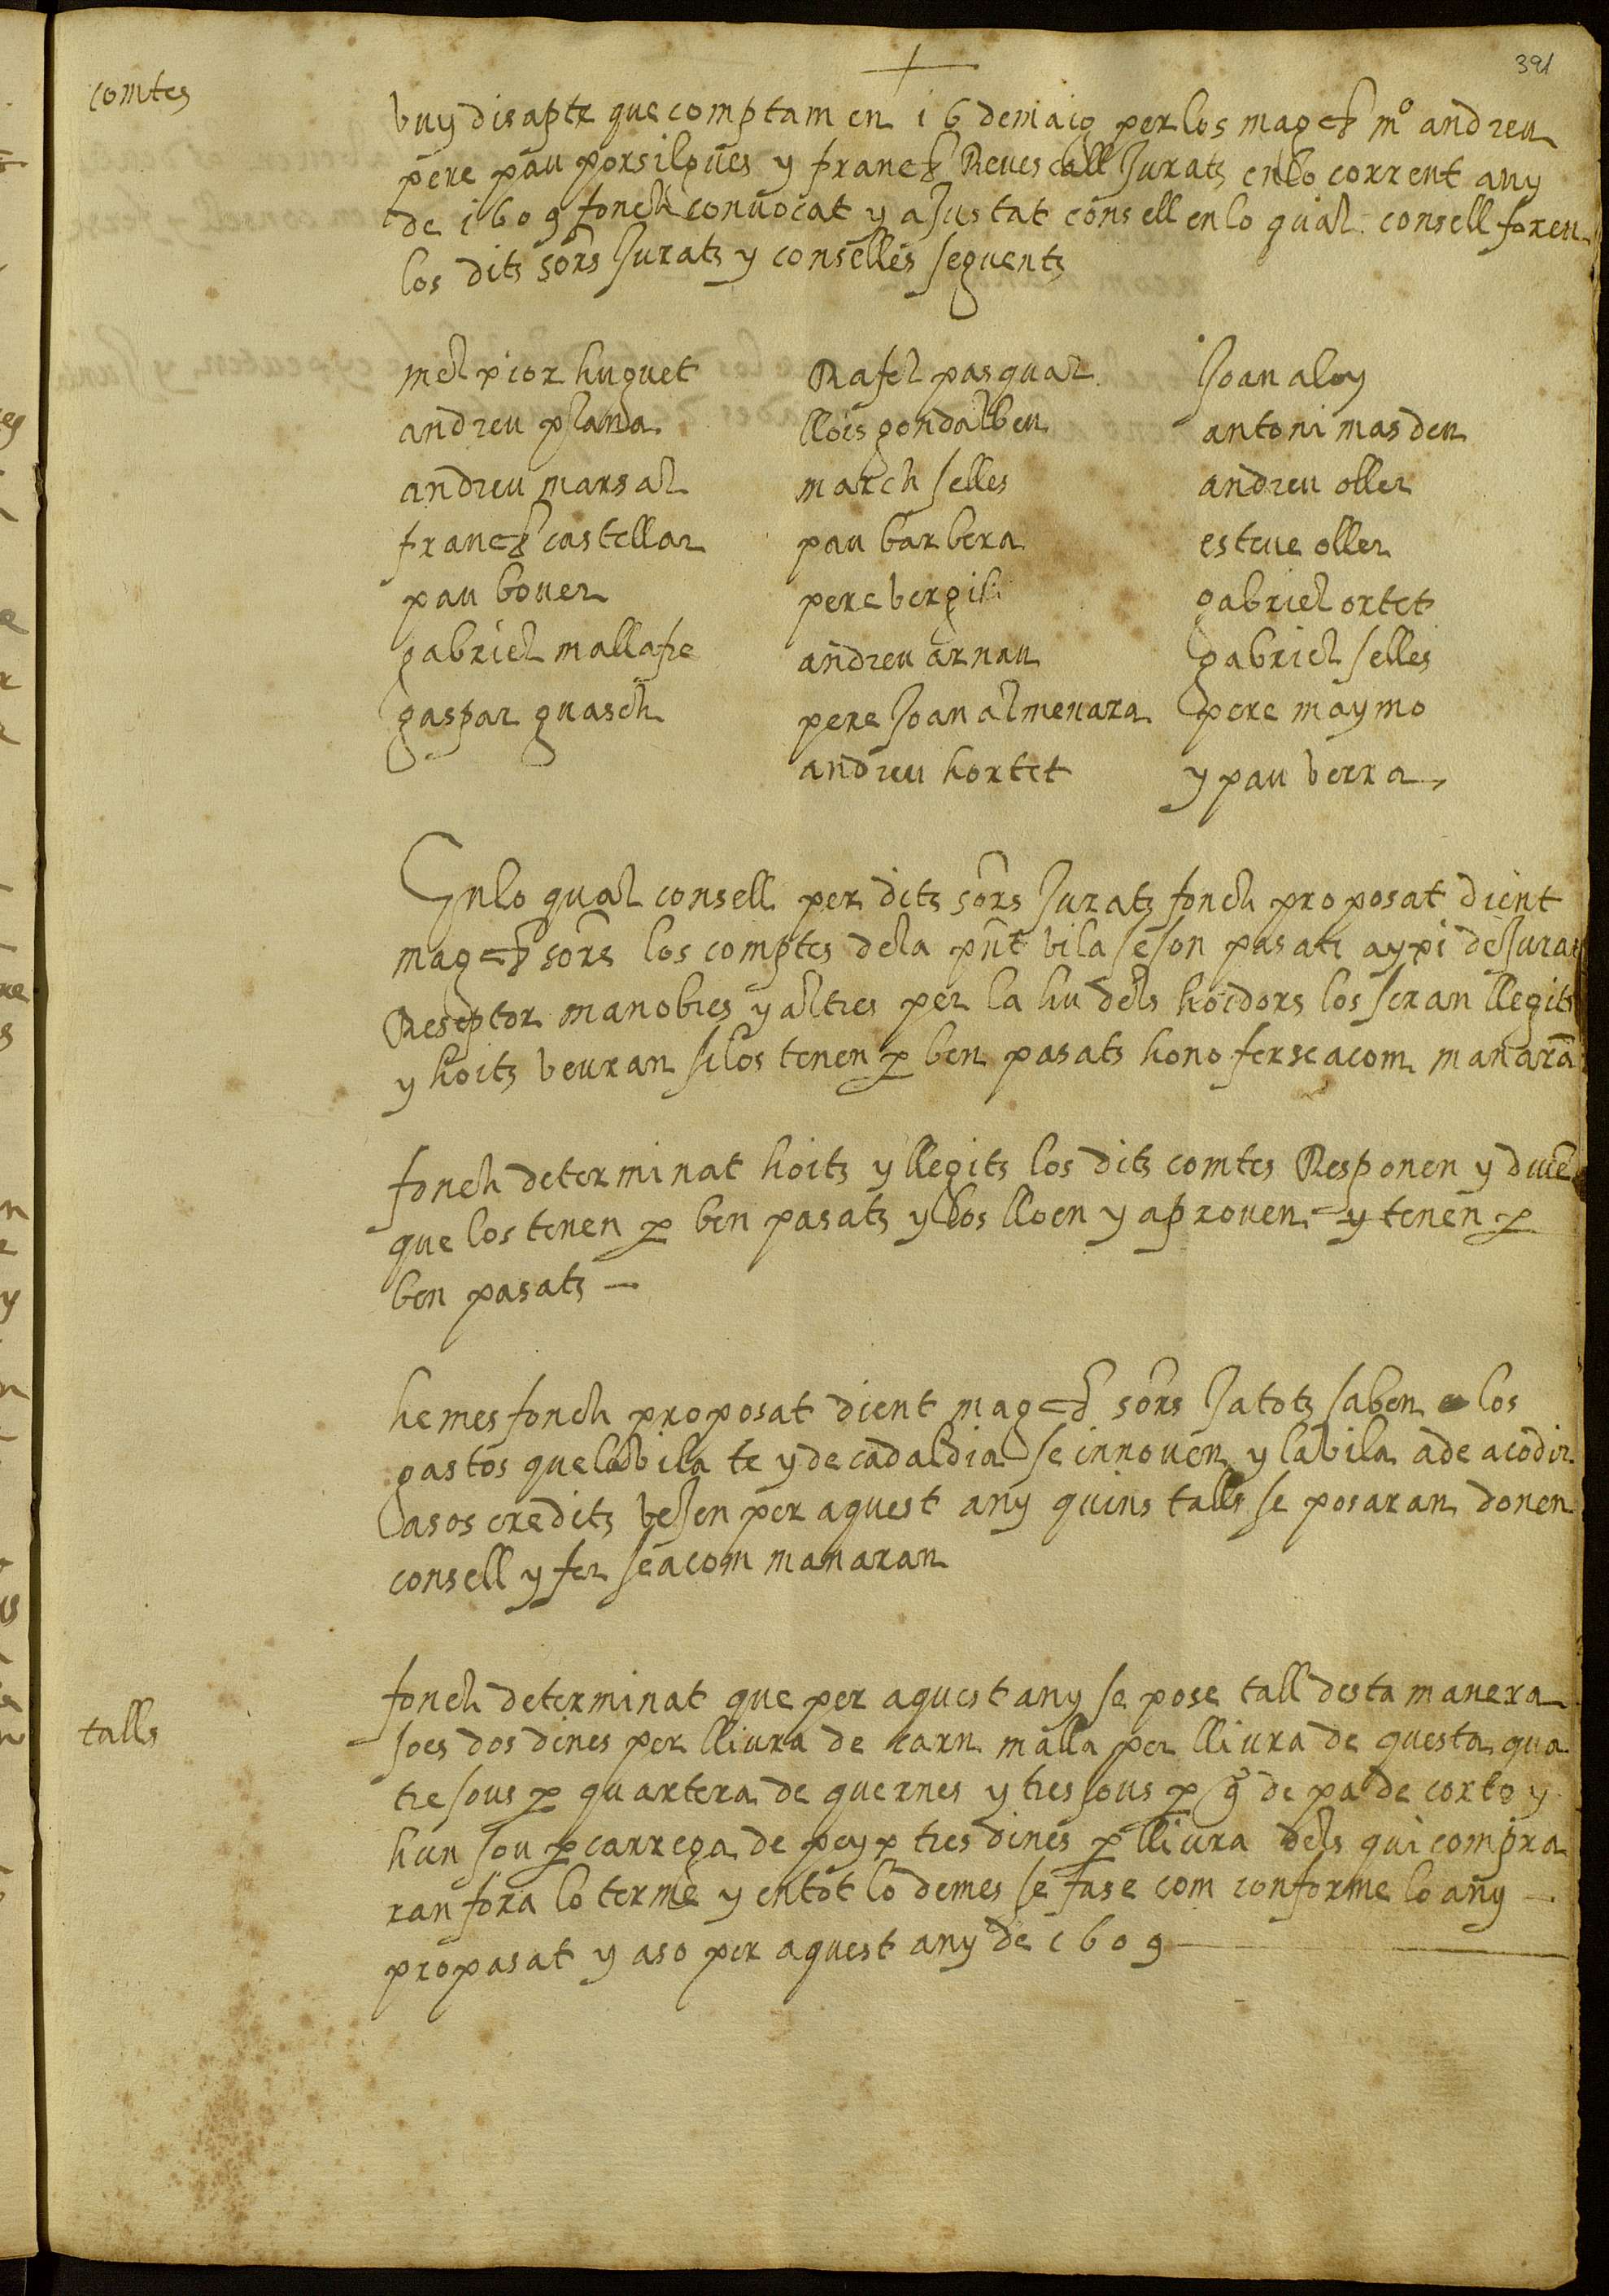 391
comtes
vuy disapte que comptam en 16 de maig per los magchs mo andreu
pere pau porsilques y franch Revescall Jurats en lo corrent any
de 1609 fonch convocat y aJustat consell en lo qual consell foren
los dits sors Jurats y conselles seguents
melxior huguet Rafel pasqual Joan aloy
andreu plana llois gondalbeu antoni masdeu
andreu marsal march selles andreu oller
franch castellar pau barbera esteve oller
pau bover pere vergili gabriel ortet
gabriel mallafre andreu arnau gabriel selles
gaspar guasch pere Joan almenara pere maymo
andreu hortet y pau verra
En lo qual consell per dits sors Jurats fonch proposat dient
magchs sors los comptes de la pnt vila se son pasats axi de Jurats
Reseptor manobres y altres per la hu dels hoidors los seran llegits
y hoits veuran si los tenen p ben pasats ho no fer sea com manarã
fonch determinat hoits y llegits los dits comtes Responen y diuẽ
que los tenen p ben pasats y los lloen y aproven y tenen p
ben pasats
he mes fonch proposat dient magchs sors Ja tots saben los
gastos que la vila te y de cadaldia se innoven y la vila a de acodir
a sos credits veJen per aquest any quins talls se posaran donen
consell y fer sea com manaran
talls
fonch determinat que per aquest any se pose tall desta manera
so es dos dines per lliura de carn malla per lliura de questa qua
tre sous p quartera de quernes y tres sous p qª de pa de corto y
hun sou p carrega de peyx tres dines p lliura dels qui compra
ran fora lo terme y en tot lo demes se fase com conforme lo any
propasat y aso per aquest any de 1609